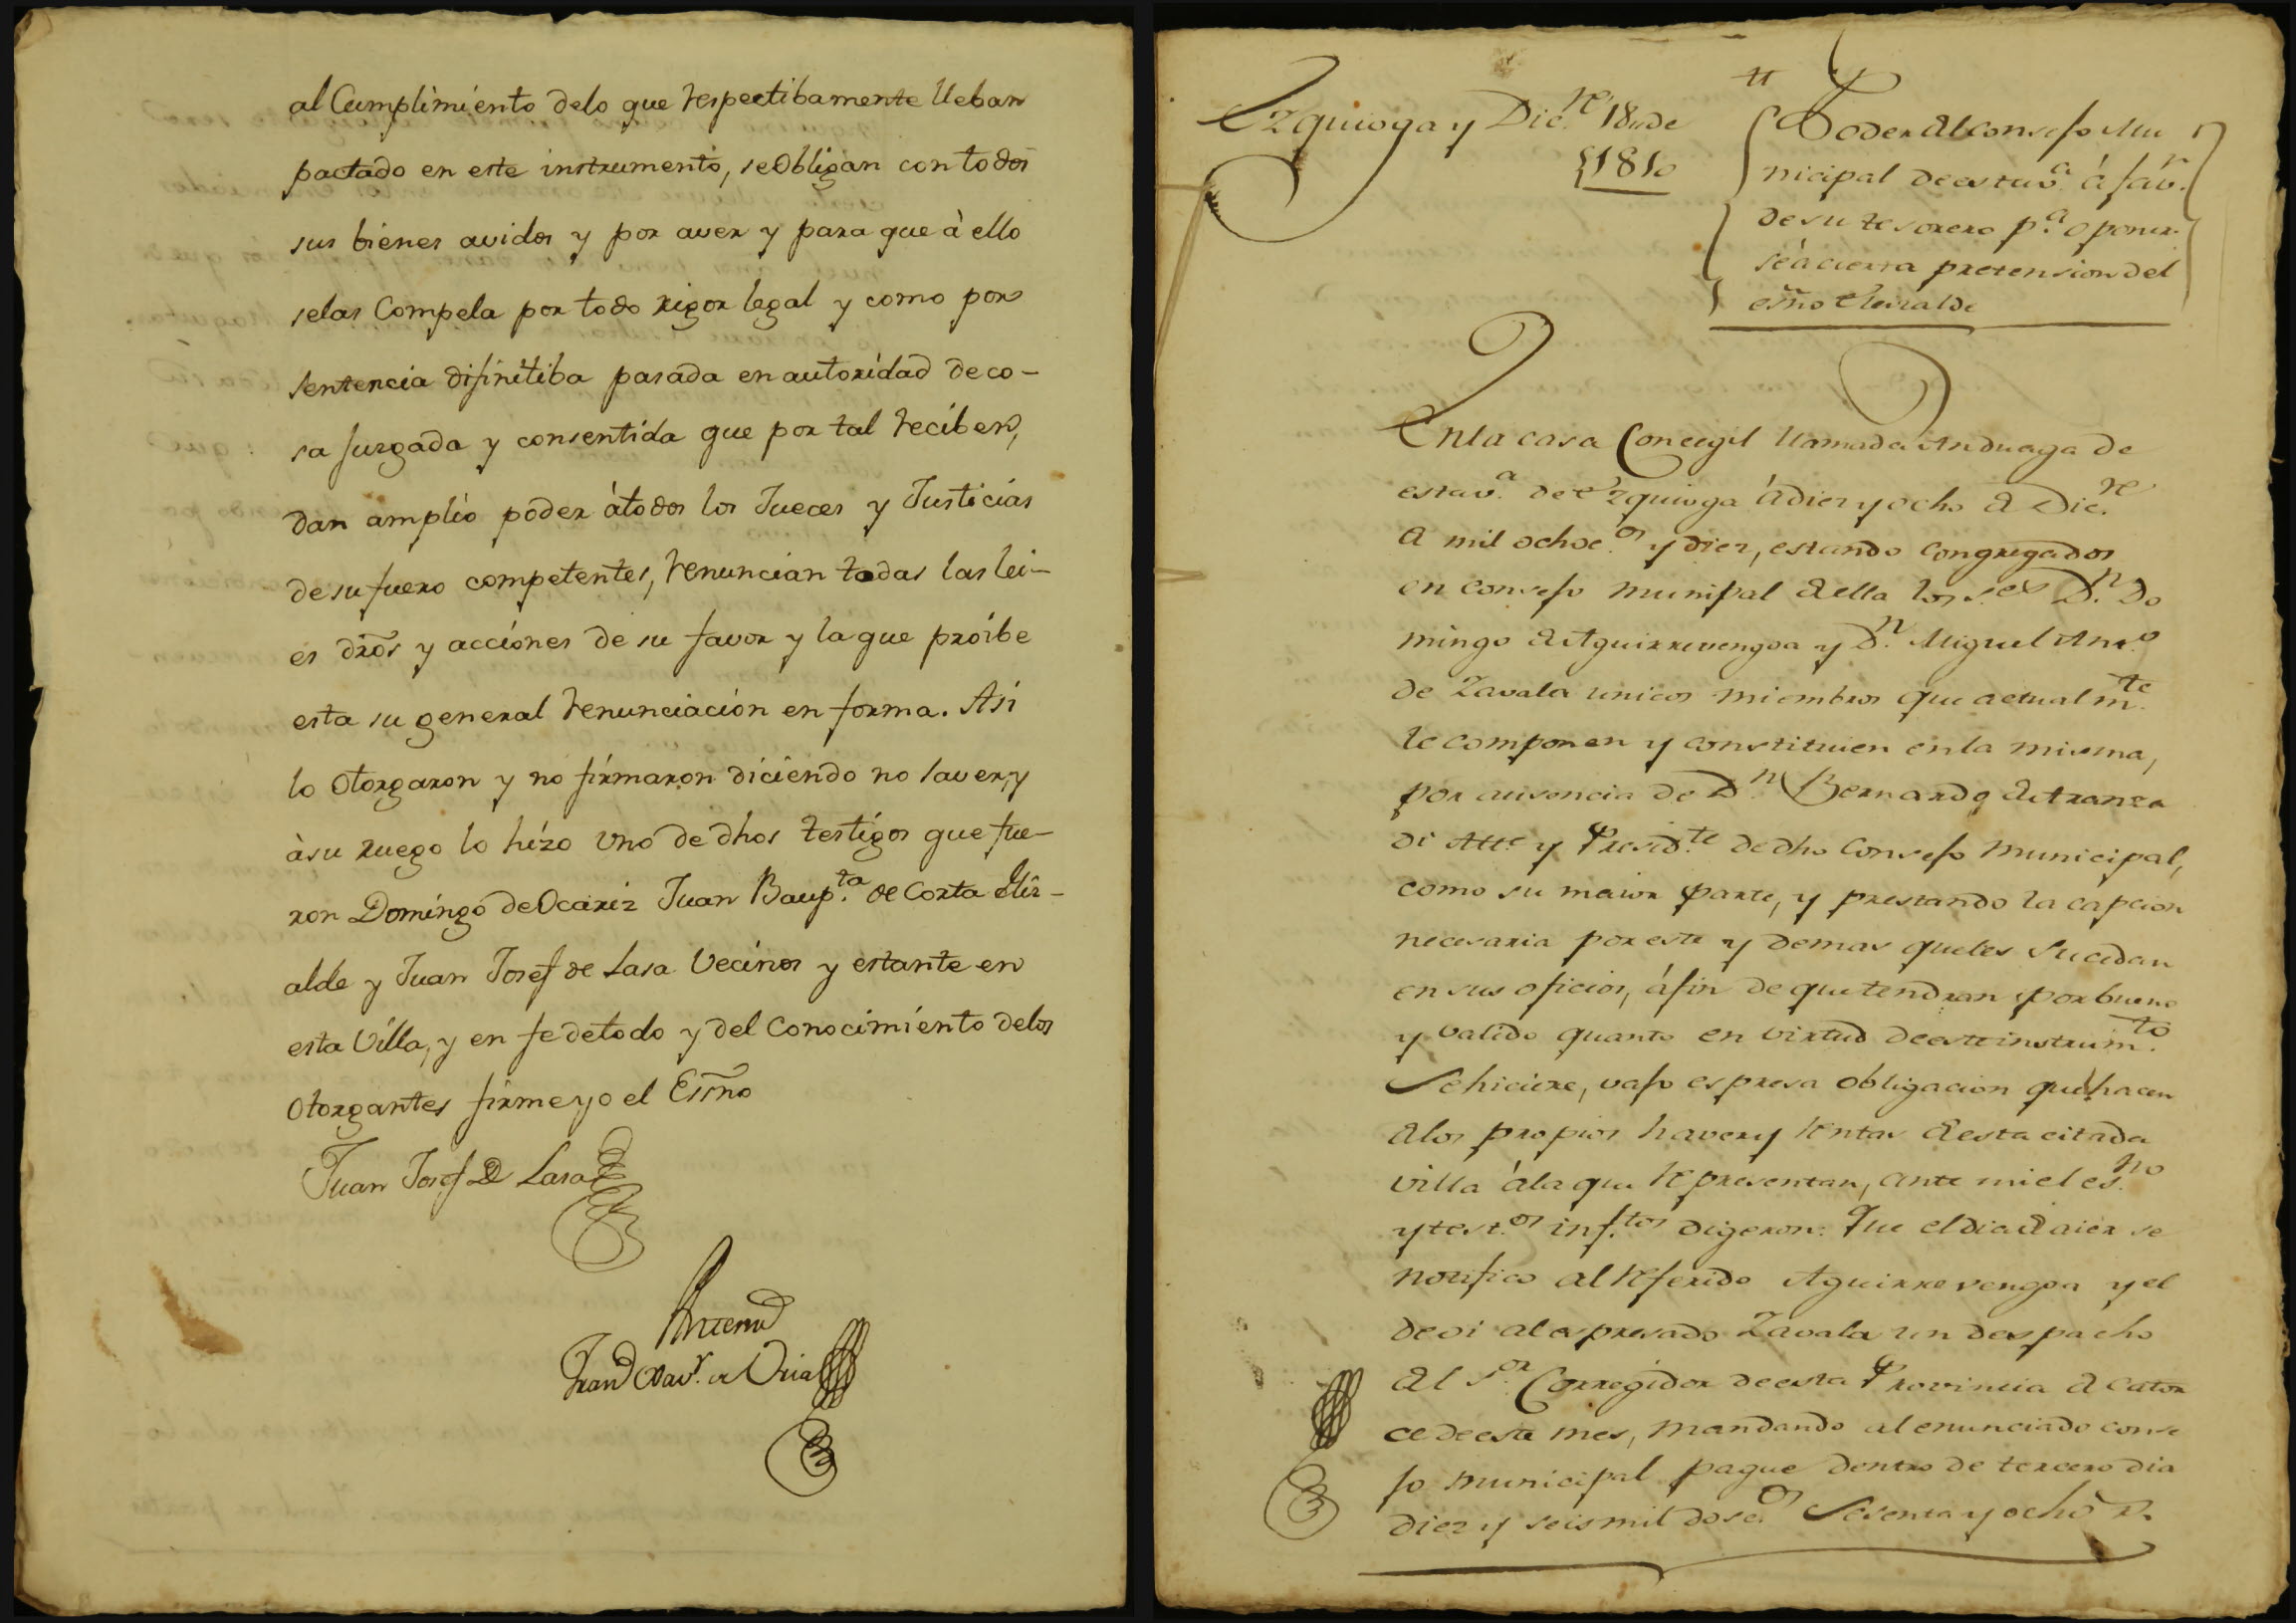 al Cumplimiento delo que respectibamente lleban
pactado en este instrumento, se Obligan con todos
sus bienes avidos y por aver y para que à ello
selas Compela por todo rigor legal y como por
sentencia difinitiba pasada en autoridad de co-
sa Jurgada y consentida que por tal reciben,
dan amplio poder átodos los Jueces y Justicias
de su fuero competentes, renuncian todas las lei-
es dros y acciones de su favor y la que proibe
esta su general renunciación en forma. Asi
lo Otorgaron y no firmaron diciendo no saver, y
àsu ruego lo hizo uno de dhos testigos que fue-
ron Domingo de Ocariz Juan Baup.ta de Corta Elir-
alde y Juan Josef de Lasa Vecinos y estante en
esta Villa, y en fe detodo y del Conocimiento delos
Otorgantes firme yo el Essno
Juan Josef De Lasa
Antemi
Fran.co Xav.r de Oria
Ezquioga y Dic.re 18 de
1810
Poder del consejo Mu
nicipal de esta v.a á fav.r
de su tesorero p.a oponer
sè à cierta pretension del
esno Eleiralde
En la casa Concegil llamada Anduaga de
esta v.a de Ezquioga á diez y ocho de Dic.re
de mil ochoc.os y diez, estando congregados
en consejo munipal de ella los S.res D.n Do
mingo de Aguirrevengoa y D.n Miguel Ant.o
de Zavala unicos miembros que actualm.te
le componen y constituien en la misma,
por ausencia de D.n Bernardo de Aranza
di Alc.e y Presid.te de dho Consejo Municipal,
como su maior parte, y prestando la capcion
necesaria por este y demas que les sucedan
en sus oficios, áfin de que tendran por bueno
y valido quanto en virtud de este instrum.to
se hiciere, vajo espresa obligacion que hacen
de los propios haver y rentas de esta citada
villa àla que representan, ante mi el es.no
y test.os inf.tos digeron: Que el dia de aier se
notifico al referido Aguirrevengoa y el
de oi al espresado Zavala un despacho
del S.or Corregidor de esta Provincia de cator
ce de este mes, mandando al enunciado conse
jo municipal pague dentro de tercero dia
diez y seis mil dosc.os sesenta y ocho r.